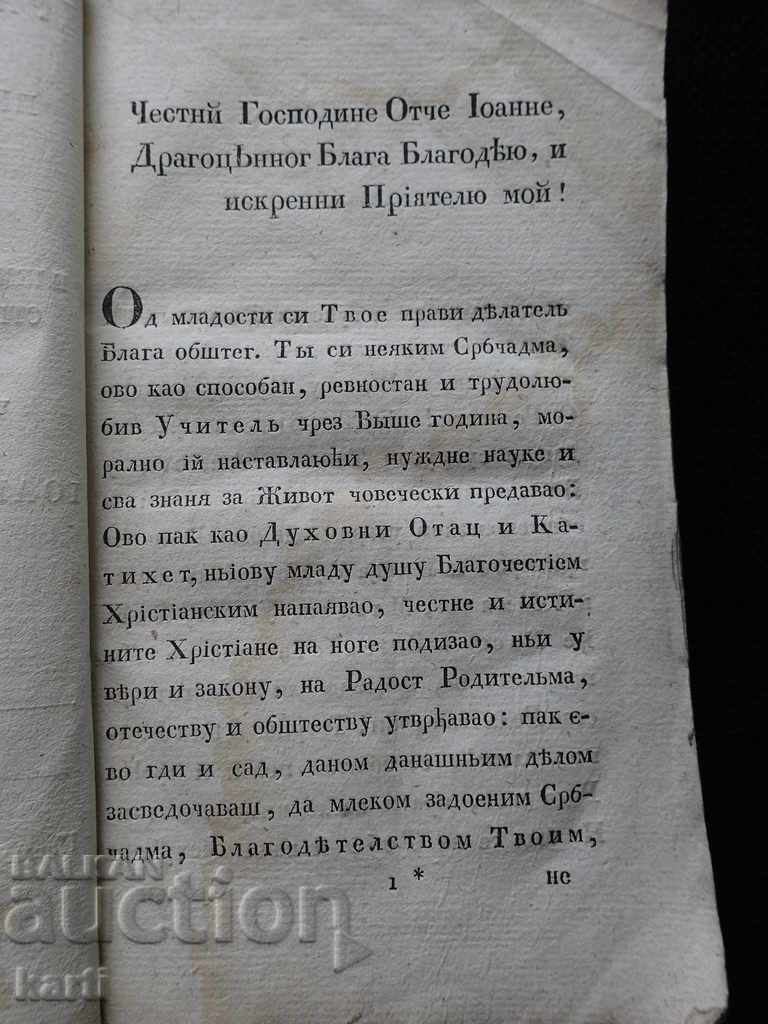 Честнӥ Господине Отче Іоанне,
Драгоцѣнног Блага Благодѣю, и
искренни Прiятелю мой!
Од младости си Твое прави дѣлатель
Блага обштег. Ты си неяким Србчадма,
ово као способан, ревностан и трудолю-
бив Учитель чрез Выше година, мо-
рално ій наставлаюћи, нуждне науке и
сва знаня за Живот човечески предавао:
Ово пак као Духовни Отац и Ка-
тихет, ньіову младу душу Благочестіем
Хрістіанским напаявао, честне и исти-
ните Хрістіане на ноге подизао, ньи у
вѣри и закону, на Радост Родительма,
отечеству и обштеству утврђавао: пак є-
во гди и сад, даном данашньим дѣлом
засведочаваш, да млеком задоеним Срб-
чадма, Благодѣтелством Твоим,
1 *
не
BALKAN
auction
karti